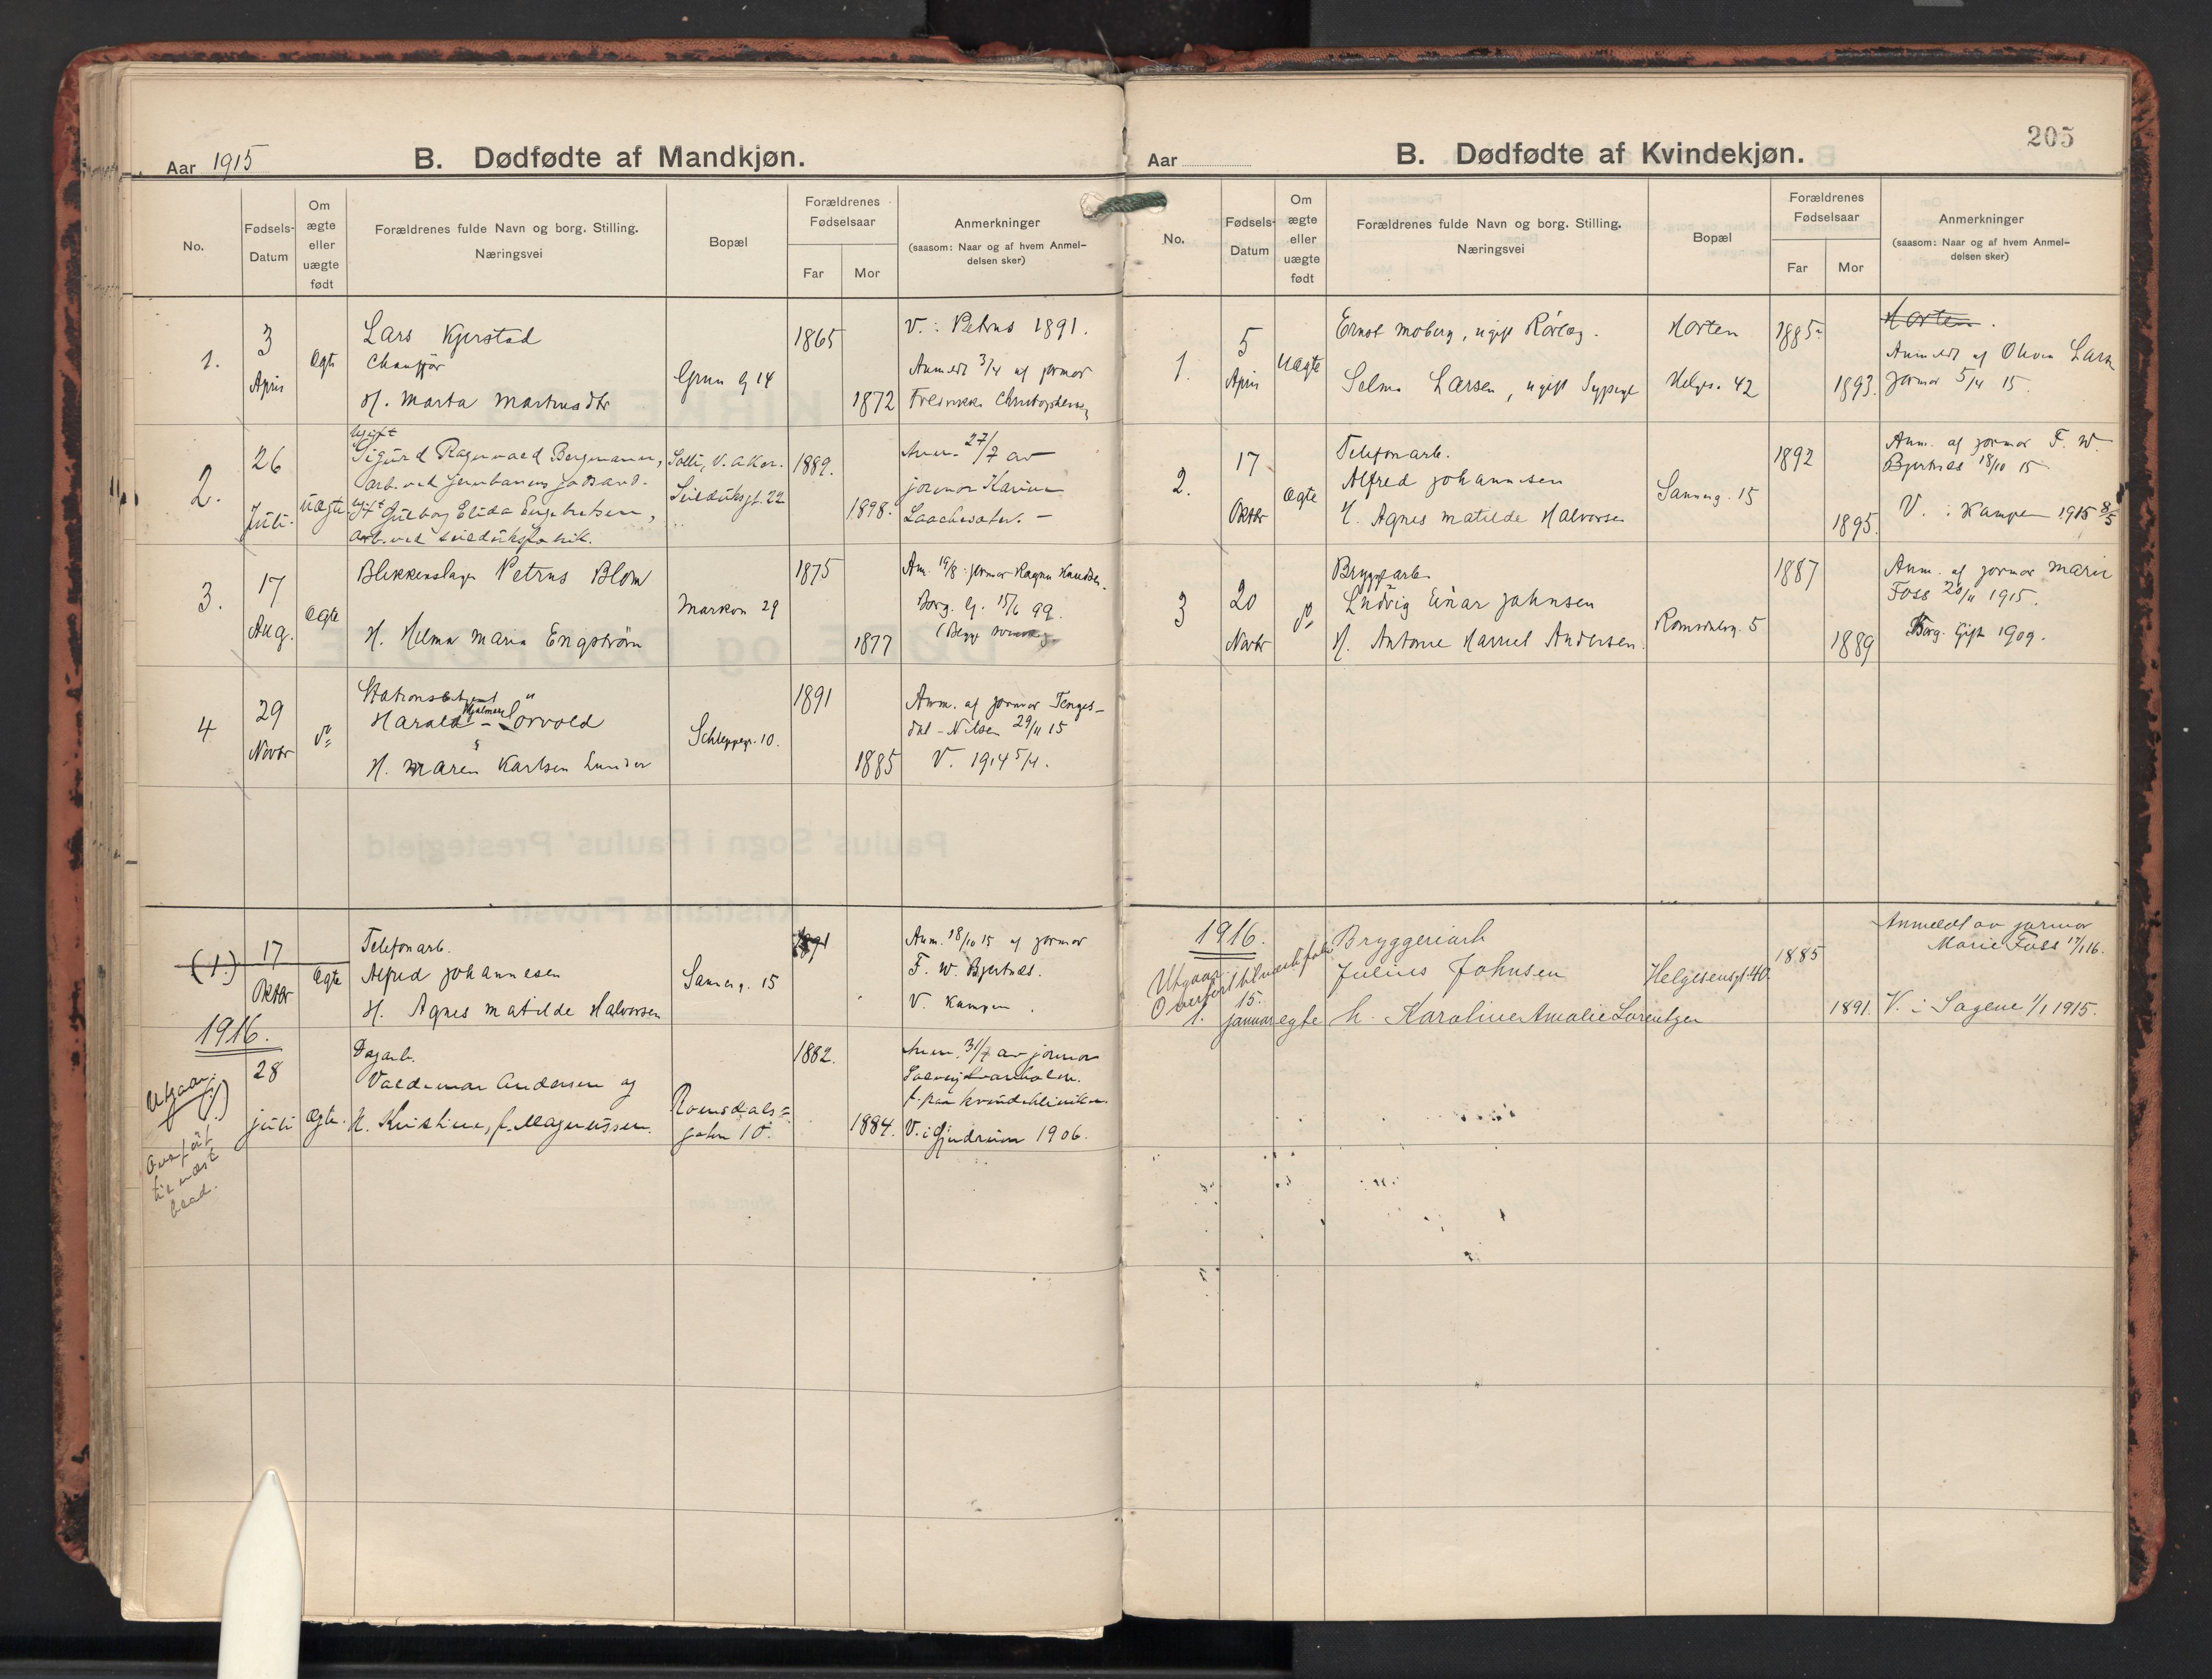 Aar 1915
B. Dødfødte af Mandkjøn.
No.
Fødsels-
Datum
Om
ægte
eller
uægte
født
Forældrenes fulde Navn og borg. Stilling.
Næringsvei
Bopæl
Forældrenes
Fødselsaar
Far
Mor
Anmerkninger
(saasom: Naar og af hvem Anmel-
delsen sker)
1.
3
April
ægte
Lars Kjerstad
Chauffør
H. Marta Martinsdtr
Grün G 14
1865
1872
V. i Petrus 1891.
Anmeldt 3/4 af jormor
Fredrikke
2.
26
Juli.
uægte
Ugift
Sigurd Ragnvald Bergmann,
arb. ved Jernbanen
Ugift Gulborg Elida Engebretsen,
arb. ved seildugsfabrik.
Solli, V. Aker.
Seildugsgt. 22
1889.
1898.
Anm. 27/7 av
jormor
3.
17
Aug.
ægte
Blikkenslager Petrus Blom
H. Hilma Maria Engström
Markvn 29
1875
1877
Anm. 19/8 jormor Ragna Knudsen.
Borg. G. 15/6 99.
4
29
Novbr
do
Stationsbetjent
Harald Hjalmar Sørvold
H. Maren Karlsen Lunder
Schleppegr. 10.
1891
1885
Anm. af jormor Tenges-
dal-Nilsen 29/11 15
V. 1914 5/4.
(1.)
17
Oktbr
ægte
Telefonarb.
Alfred Johannesen
H. Agnes Matilde Halvorsen
Sannerg. 15
1891
Anm. 18/10 15 af jormor
F. W. Bjertnæs.
V. Kampen.
1916.
Utgaar.
Overført
til næste
blad.
28
juli
ægte.
Dagarb.
Valdemar Andersen og
H. Kristine, f. Magnussen.
Romsdals=
gaten 10.
1882.
1884.
Anm. 31/7 av jormor
Solveig
f. paa kvindeklinikken.
V. i Gjerdrum 1906.
205
Aar
B. Dødfødte af Kvindekjøn.
No.
Fødsels-
Datum
Om
ægte
eller
uægte
født
Forældrenes fulde Navn og borg. Stilling.
Næringsvei
Bopæl
Forældrenes
Fødselsaar
Far
Mor
Anmerkninger
(saasom: Naar og af hvem Anmel-
delsen sker)
1.
5
April
uægte
Ernst Moberg, ugift Rørlæg.
Selma Larsen, ugift Sypige
Horten
Helges. 42
1885
1893.
Horten.
Anmeldt af Oliva Larsen
jormor 5/4 15.
2.
17
Oktbr
ægte
Telefonarb.
Alfred Johannesen
H. Agnes Matilde Halvorsen
Sannerg. 15
1892
1895.
Anm. af jormor F. W.
Bjertnæs 18/10 15
V. i Kampen 1915 8/5
3
20
Novbr
do
Bryggeriarb.
Ludvig Einar Johnsen
H. Antonie Andersen.
Romsdalsg. 5
1887
1889
Anm. af jormor Marie
Foss 20/11 1915.
Borg. Gift 1909.
1916.
Utgaar.
Overført til næste folio
1.
15.
januar
egte
Bryggeriarb
Julius Johnsen
h. Karoline Amalie Lorentzen
Helgesensgt. 40.
1885
1891.
Anmeldt av jormor
Marie Foss 17/1 16.
V. i Sagene 1/1 1915.